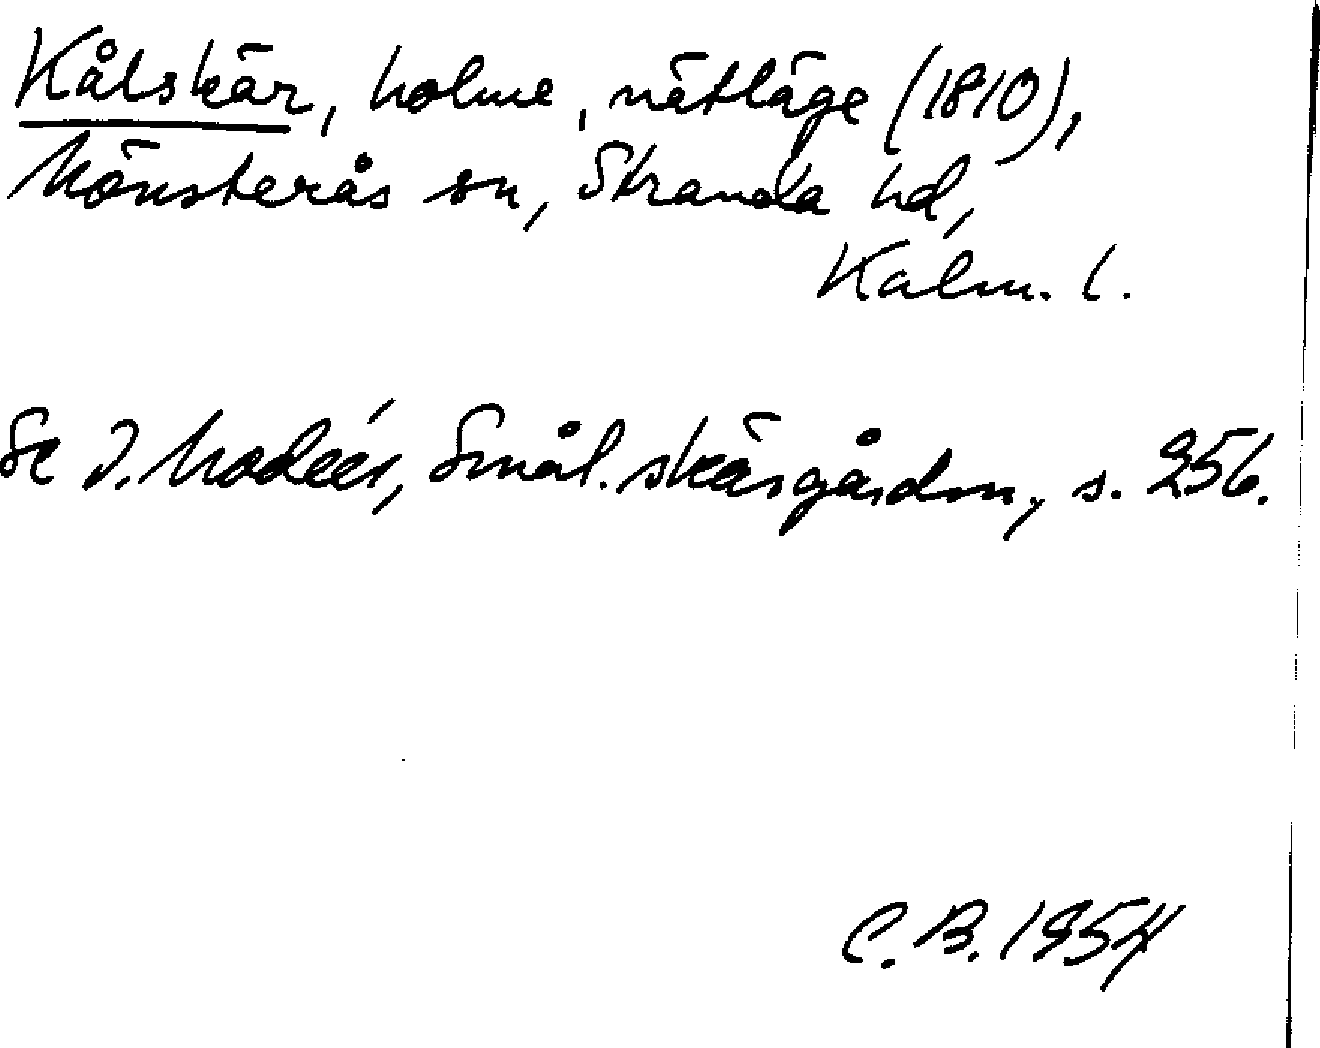 Kålskär, holme, nätläge (1810),
Mönsterås sn, Stranda hd,
Kalm. l.
Se I. Modéer, Smål. skärgårdsn, s. 256.
C. B. 1954